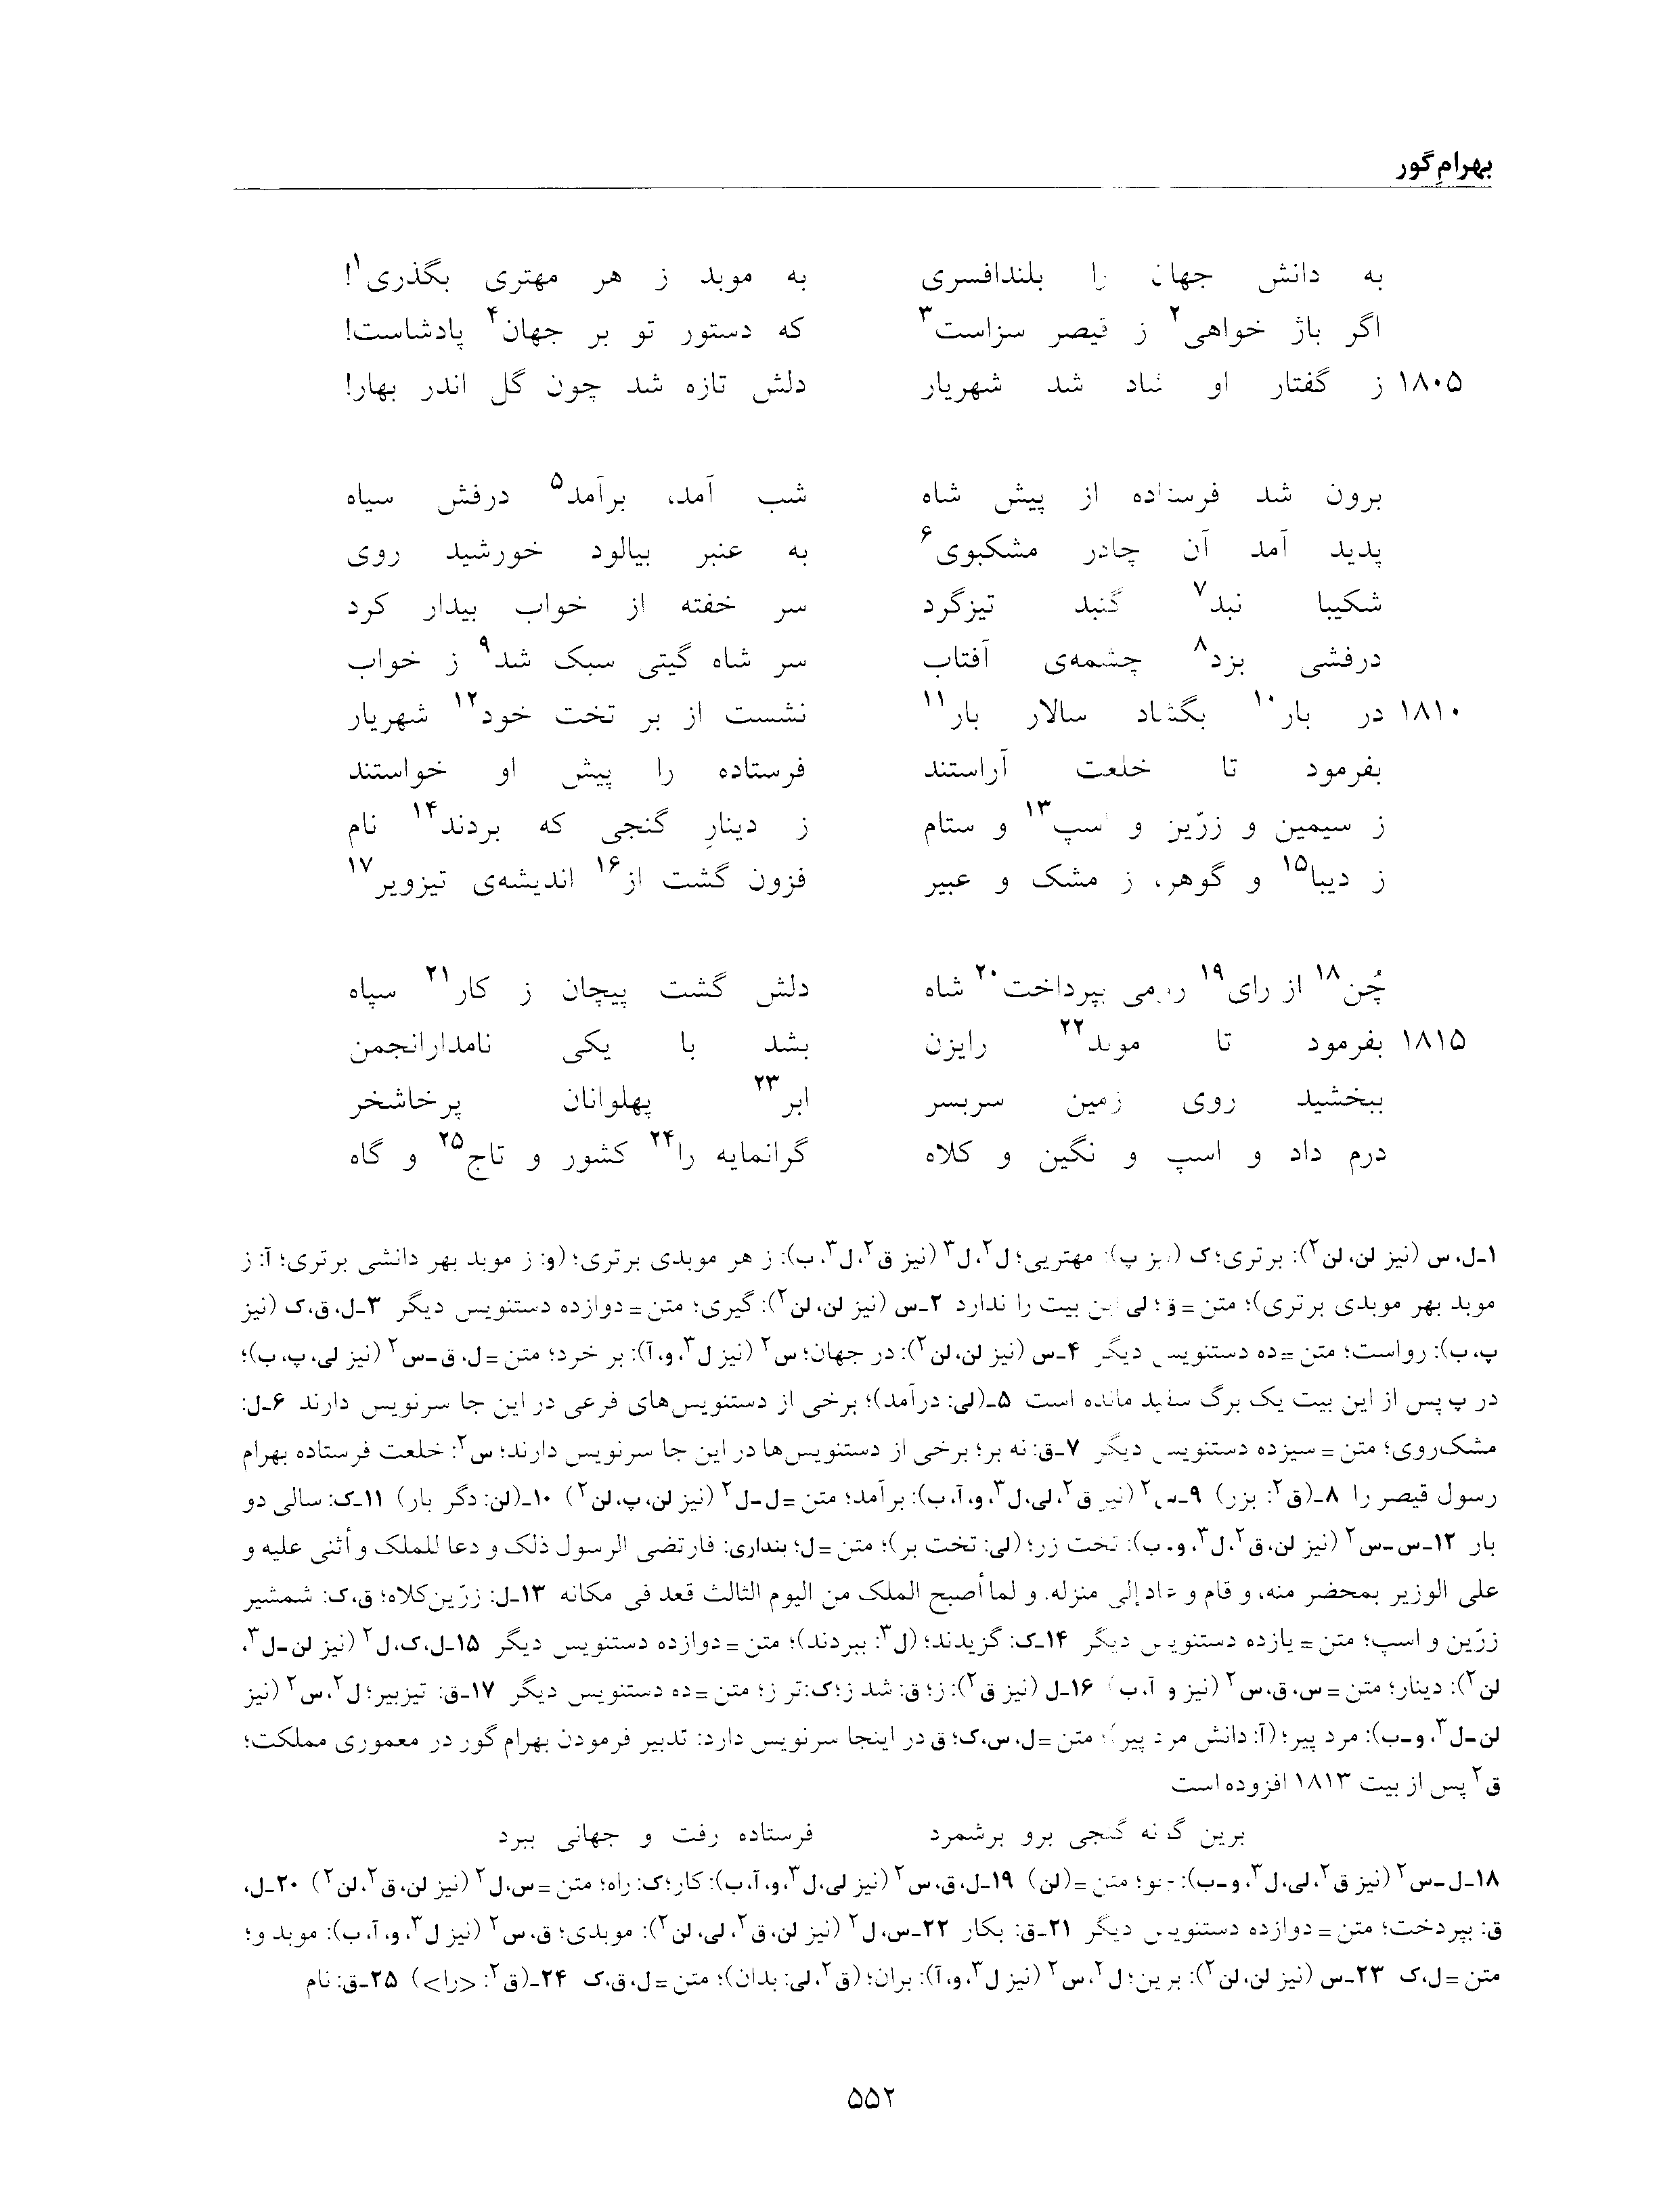 بهرامِ گور
به دانش جهان را بلندافسری به موبد ز هر مهتری بگذری۱!
اگر باژ خواهی۲ ز قیصر سزاست۳ که دستور تو بر جهان۴ پادشاست!
۱۸۰۵ ز گفتار او شاد شد شهریار دلش تازه شد چون گل اندر بهار!
برون شد فرستاده از پیش شاه شب آمد، برآمد۵ درفش سیاه
پدید آمد آن چادر مشکبوی۶ به عنبر بیالود خورشید روی
شکیبا نبد۷ گنبد تیزگرد سر خفته از خواب بیدار کرد
درفشی بزد۸ چشمه‌ی آفتاب سر شاه گیتی سبک شد۹ ز خواب
۱۸۱۰ در بار۱۰ بگشاد سالار بار۱۱ نشست از بر تخت خود۱۲ شهریار
بفرمود تا خلعت آراستند فرستاده را پیش او خواستند
ز سیمین و زرّین و اسپ۱۳ و ستام ز دینارِ گنجی که بردند۱۴ نام
ز دیبا۱۵ و گوهر، ز مشک و عبیر فزون گشت از۱۶ اندیشه‌ی تیزویر۱۷
چُن۱۸ از رای۱۹ رومی بپرداخت۲۰ شاه دلش گشت پیچان ز کار۲۱ سپاه
۱۸۱۵ بفرمود تا موبد۲۲ رایزن بشد با یکی نامدارانجمن
ببخشید روی زمین سربسر ابر۲۳ پهلوانان پرخاشخر
درم داد و اسپ و نگین و کلاه گرانمایه را۲۴ کشور و تاج۲۵ و گاه
۱ـ ل، س (نیز لن، لن۲): برتری؛ ک (نیز پ): مهتریی؛ ل۲، ل۳ (نیز ق۲، ل۳، ب): ز هر موبدی برتری؛ (و: ز موبد بهر دانشی برتری؛ آ: ز
موبد بهر موبدی برتری)؛ متن = ق؛ لی این بیت را ندارد ۲ـ س (نیز لن، لن۲): گیری؛ متن = دوازده دستنویس دیگر ۳ـ ل، ق، ک (نیز
پ، ب): رواست؛ متن = ده دستنویس دیگر ۴ـ س (نیز لن، لن۲): در جهان؛ س۲ (نیز ل۳، و، آ): بر خرد؛ متن = ل، ق ـ س۲ (نیز لی، پ، ب)؛
در پ پس از این بیت یک برگ سفید مانده است ۵ـ (لی: درآمد)؛ برخی از دستنویس‌های فرعی در این جا سرنویس دارند ۶ـ ل:
مشک‌روی؛ متن = سیزده دستنویس دیگر ۷ـ ق: نه بر؛ برخی از دستنویس‌ها در این جا سرنویس دارند؛ س۲: خلعت فرستاده بهرام
رسول قیصر را ۸ـ (ق۲: بزر) ۹ـ س۲ (نیز ق۲، لی، ل۳، و، آ، ب): برآمد؛ متن = ل ـ ل۲ (نیز لن، پ، لن۲) ۱۰ـ (لن: دگر بار) ۱۱ـ ک: سالی دو
بار ۱۲ـ س ـ س۲ (نیز لن، ق۲، ل۳، و ـ ب): تخت زر؛ (لی: تخت بر)؛ متن = ل؛ بنداری: فارتضی الرسول ذلک و دعا للملک و أثنی علیه و
علی الوزیر بمحضر منه، و قام و عاد إلی منزله. و لما أصبح الملک من الیوم الثالث قعد فی مکانه ۱۳ـ ل: زرّین‌کلاه؛ ق، ک: شمشیر
زرّین و اسپ؛ متن = یازده دستنویس دیگر ۱۴ـ ک: گزیدند؛ (ل۳: ببردند)؛ متن = دوازده دستنویس دیگر ۱۵ـ ل، ک، ل۲ (نیز لن ـ ل۳،
لن۲): دینار؛ متن = س، ق، س۲ (نیز و آ، ب) ۱۶ـ ل (نیز ق۲): ز؛ ق: شد ز؛ ک: تر ز؛ متن = ده دستنویس دیگر ۱۷ـ ق: تیزبیر؛ ل۲، س۲ (نیز
لن ـ ل۳، و ـ ب): مرد پیر؛ (آ: دانش مرد پیر)؛ متن = ل، س، ک؛ ق در اینجا سرنویس دارد: تدبیر فرمودن بهرام گور در معموری مملکت؛
ق۲ پس از بیت ۱۸۱۳ افزوده است
برین گونه گنجی برو برشمرد فرستاده رفت و جهانی ببرد
۱۸ـ ل ـ س۲ (نیز ق۲، لی، ل۳، و ـ ب): چو؛ متن = (لن) ۱۹ـ ل، ق، س۲ (نیز لی، ل۳، و، آ، ب): کار؛ ک: راه؛ متن = س، ل۲ (نیز لن، ق۲، لن۲) ۲۰ـ ل،
ق: بپردخت؛ متن = دوازده دستنویس دیگر ۲۱ـ ق: بکار ۲۲ـ س، ل۲ (نیز لن، ق۲، لی، لن۲): موبدی؛ ق، س۲ (نیز ل۳، و، آ، ب): موبد و؛
متن = ل، ک ۲۳ـ س (نیز لن، لن۲): برین؛ ل۲، س۲ (نیز ل۳، و، آ): بران؛ (ق۲، لی: بدان)؛ متن = ل، ق، ک ۲۴ـ (ق۲: <را>) ۲۵ـ ق: نام
۵۵۲